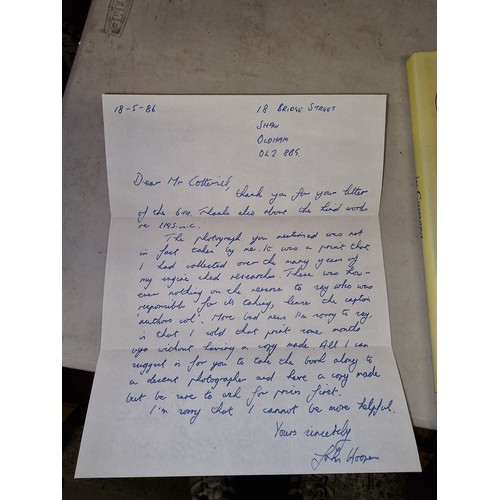 18-5-86
18 BRIDGE STREET
SHAW
OLDHAM
OL2 8BG.
Dear Mr Cotterill,
Thank you for your letter
of the 6th. Thanks also about the kind words
re
The photograph you mentioned was not
in fact taken by me. It was a print that
I had collected over the many years of
my engine shed research. There was how-
ever nothing on the reverse to say who was
responsible for its taking, hence the caption
'authors col'. More bad news I'm sorry to say
is that I sold that print some months
ago without having a copy made. All I can
suggest is for you to take the book along to
a decent photographer and have a copy made
but be sure to ask for prices first.
I'm sorry that I cannot be more helpful.
Yours sincerely
John Hooper